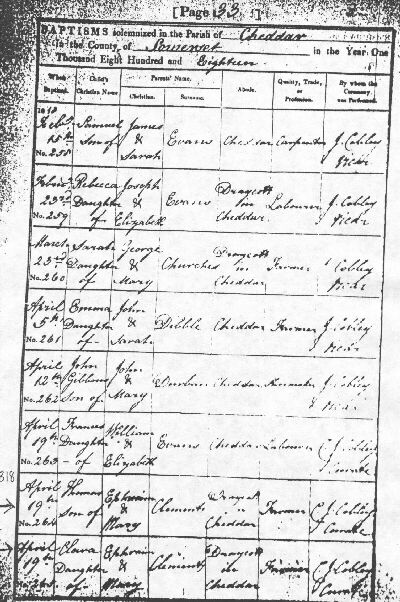 [Page 33.]
BAPTISMS solemnized in the Parish of Cheddar
in the County of Somerset in the Year One
Thousand Eight Hundred and Eighteen
When Baptized. Child's Christian Name. Parents' Name. Christian. Surname. Abode. Quality, Trade, or Profession. By whom the Ceremony was Performed.
1818
Feby Samuel James
15th Son of & Evans Cheddar Carpenter J. Cobley
No. 258 Sarah Vicar
Rebecca Joseph Draycott
23rd Daughter & Evans in Labourer J. Cobley
No. 259 of Elizabeth Cheddar Vicar
March Sarah George Draycott
23rd Daughter & Churched in Farmer Cobley
No. 260 of Mary Cheddar Vicar
April Emma John
5th Daughter & Dibble Cheddar Farmer J. Cobley
No. 261 of Sarah Vicar
April John John
12th & Durban Cheddar J. Cobley
No. 262 Son of Mary Vicar
April Frances William
19th Daughter & Evans Cheddar Labourer C J Cobley
No. 263 of Elizabeth Curate
318
April Thomas Ephraim Draycott
19th Son of & Clements in Farmer C J Cobley
No. 264 Mary Cheddar Curate
April Clara Ephraim Draycott
19th Daughter & Clements in Farmer C J Cobley
of Mary Cheddar Curate